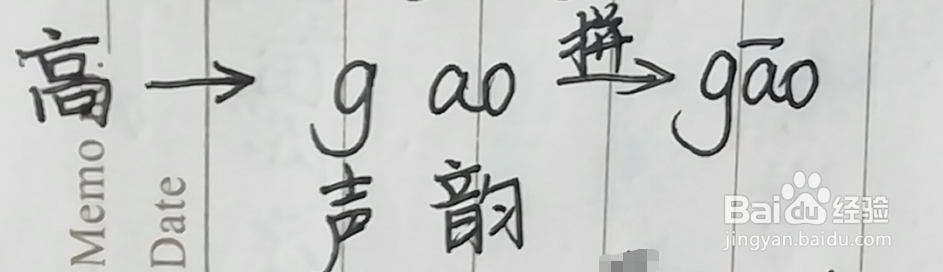 高 → g ao 拼→ gāo
声 韵
Memo
Date
Baidu经验
jingyan.baidu.com